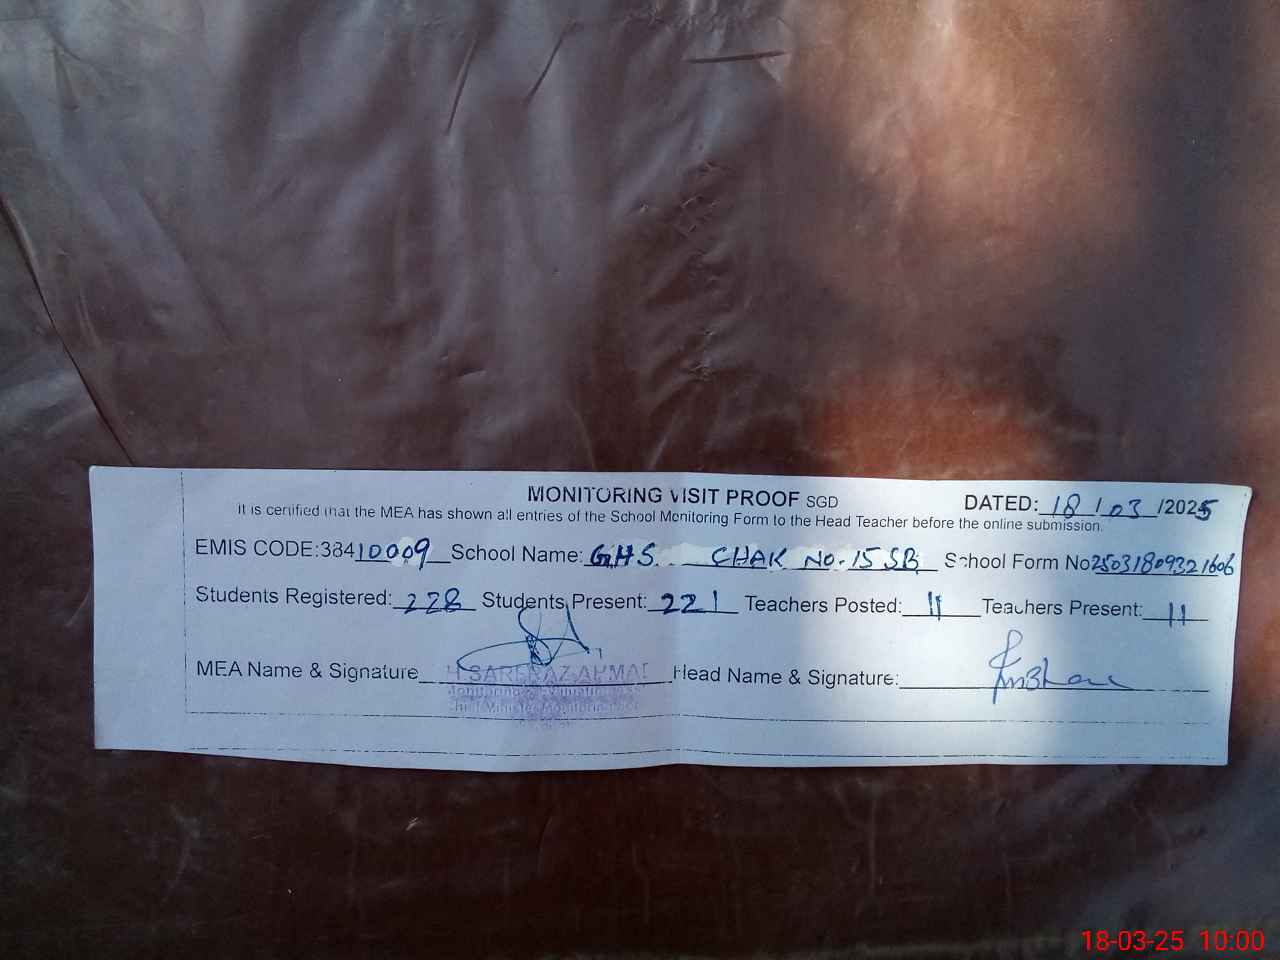 MONITORING VISIT PROOF SGD DATED: 18/03/2025
It is certified that the MEA has shown all entries of the School Monitoring Form to the Head Teacher before the online submission.
EMIS CODE:38410009 School Name: GHS CHAK NO.15 SB School Form No25031809321606
Students Registered: 228 Students Present: 221 Teachers Posted: 11 Teachers Present: 11
MEA Name & Signature Head Name & Signature:
SARFRAZ AHMAD
18-03-25 10:00